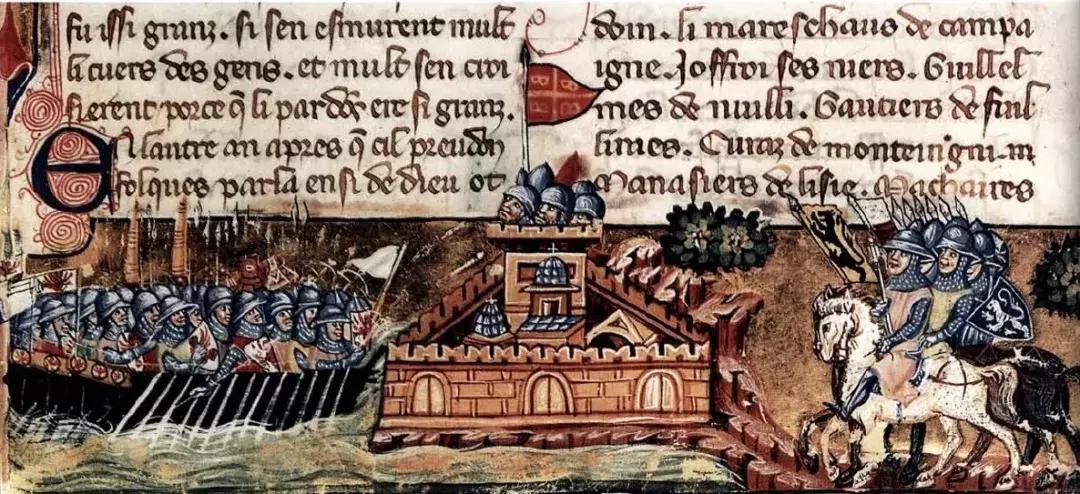 fu issi granz. si sen esmurent mult
li cuers des gens. et mult sen croi
sierent porce q̄ li pardōs ere si granz.
En lautre an apres que cil preudom
folques parla ensi de dieu ot
doin. li mareschaus de campa
igne. Joffroi ses niers. Guillel
mes de nuilli. Gautiers de fuil
lines. Curaz de
Manasiers de lisle. Machaires